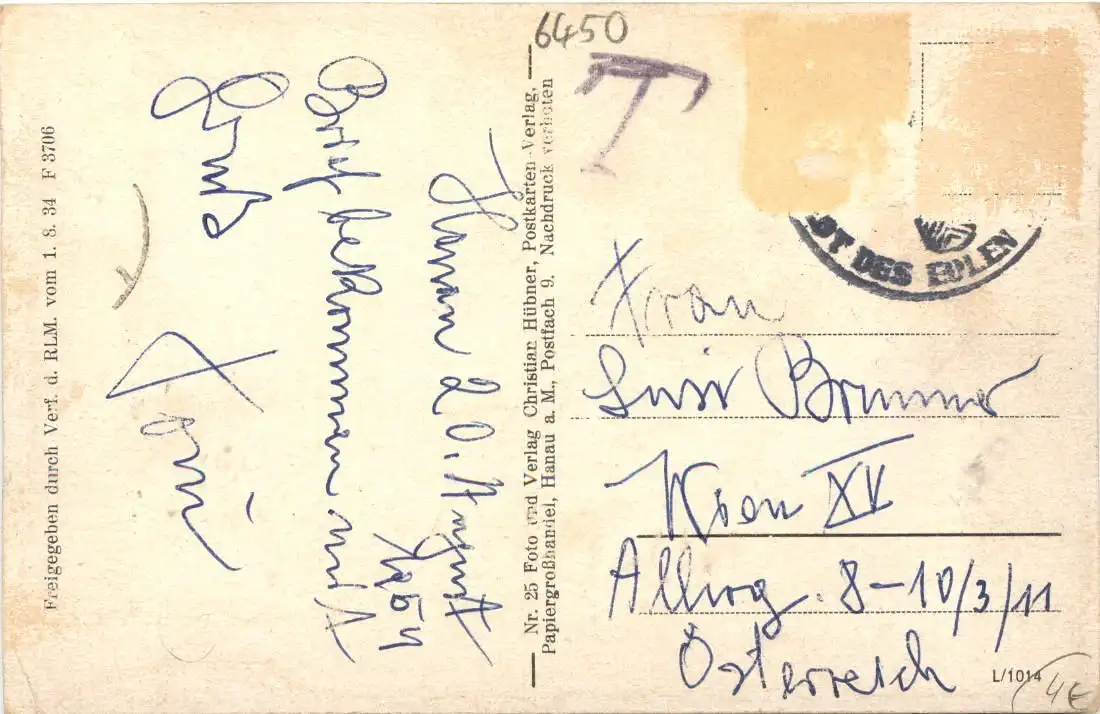 6450
T
Hanau 20. August
1954
Brief bekommen und
Gruß
Toni
Freigegeben durch Verf. d. RLM. vom 1. 8. 34 F 3706
Nr. 25 Foto und Verlag Christian Hübner, Postkarten-Verlag,
Papiergroßhandel, Hanau a. M., Postfach 9. Nachdruck verboten
DES EDLEN
Frau
Luise Brunner
Wien XV
8-10/3/11
Österreich
L/1014
4€